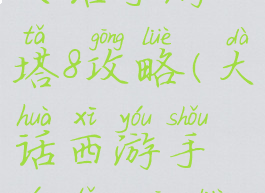 tǎ gōng lüè dà
塔8攻略(大
huà xī yóu shǒu
话西游手